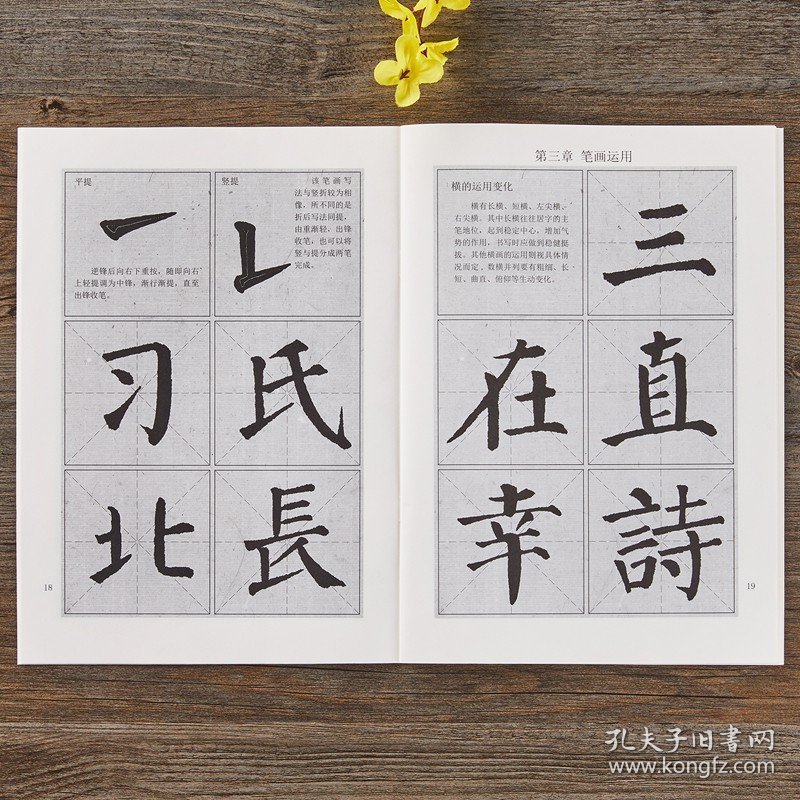 平提
逆锋后向右下重按，随即向右
上轻提调为中锋，渐行渐提，直至
出锋收笔。
竖提
该笔画写
法与竖折较为相
像，所不同的是
折后写法同提，
由重渐轻，出锋
收笔，也可以将
竖与提分成两笔
完成。
习
氏
北
長
18
第三章 笔画运用
横的运用变化
横有长横、短横、左尖横、
右尖横。其中长横往往居字的主
笔地位，起到稳定中心，增加气
势的作用，书写时应做到稳健挺
拔。其他横画的运用则视具体情
况而定，数横并列要有粗细、长
短、曲直、俯仰等生动变化。
三
在
直
幸
詩
19
孔夫子旧書网
www.kongfz.com